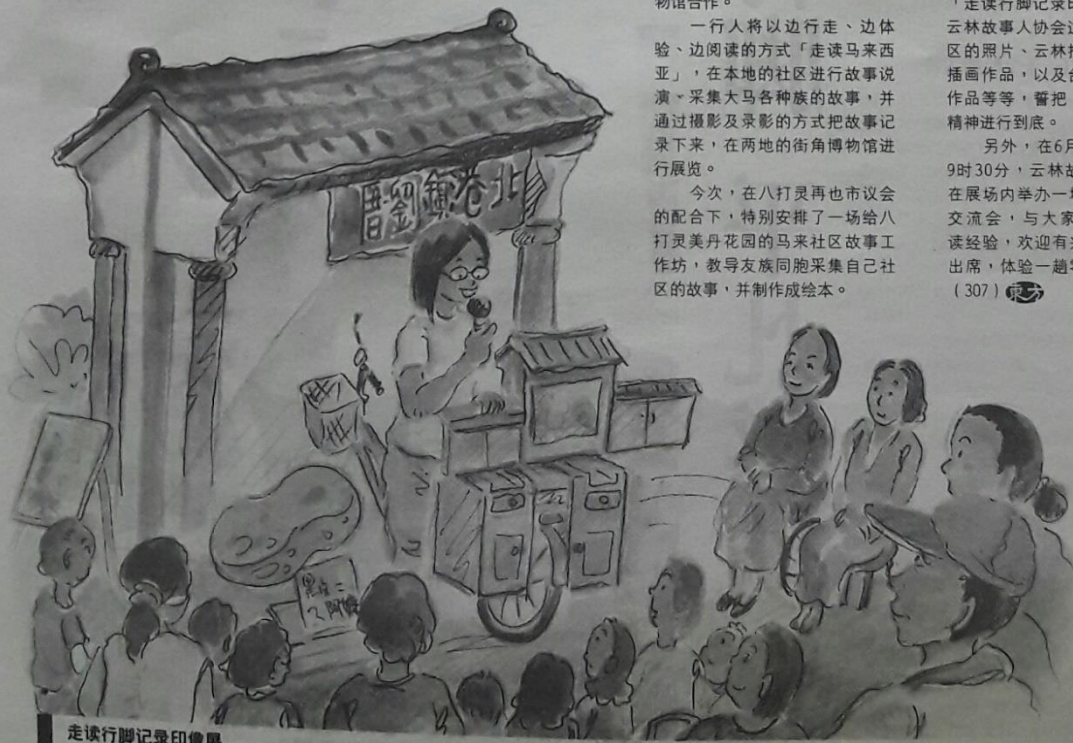 物馆合作。
一行人将以边行走、边体
验、边阅读的方式「走读马来西
亚」，在本地的社区进行故事说
演、采集大马各种族的故事，并
通过摄影及录影的方式把故事记
录下来，在两地的街角博物馆进
行展览。
今次，在八打灵再也市议会
的配合下，特别安排了一场给八
打灵美丹花园的马来社区故事工
作坊，教导友族同胞采集自己社
区的故事，并制作成绘本。
，走读行脚记录印
云林故事人协会
区的照片、云林
插画作品，以及
作品等等，誓把
精神进行到底。
另外，在6月
9时30分，云林故
在展场内举办一
交流会，与大家
读经验，欢迎有
出席，体验一趟
（307）東方
北港鎮劉厝
走读行脚记录印像展